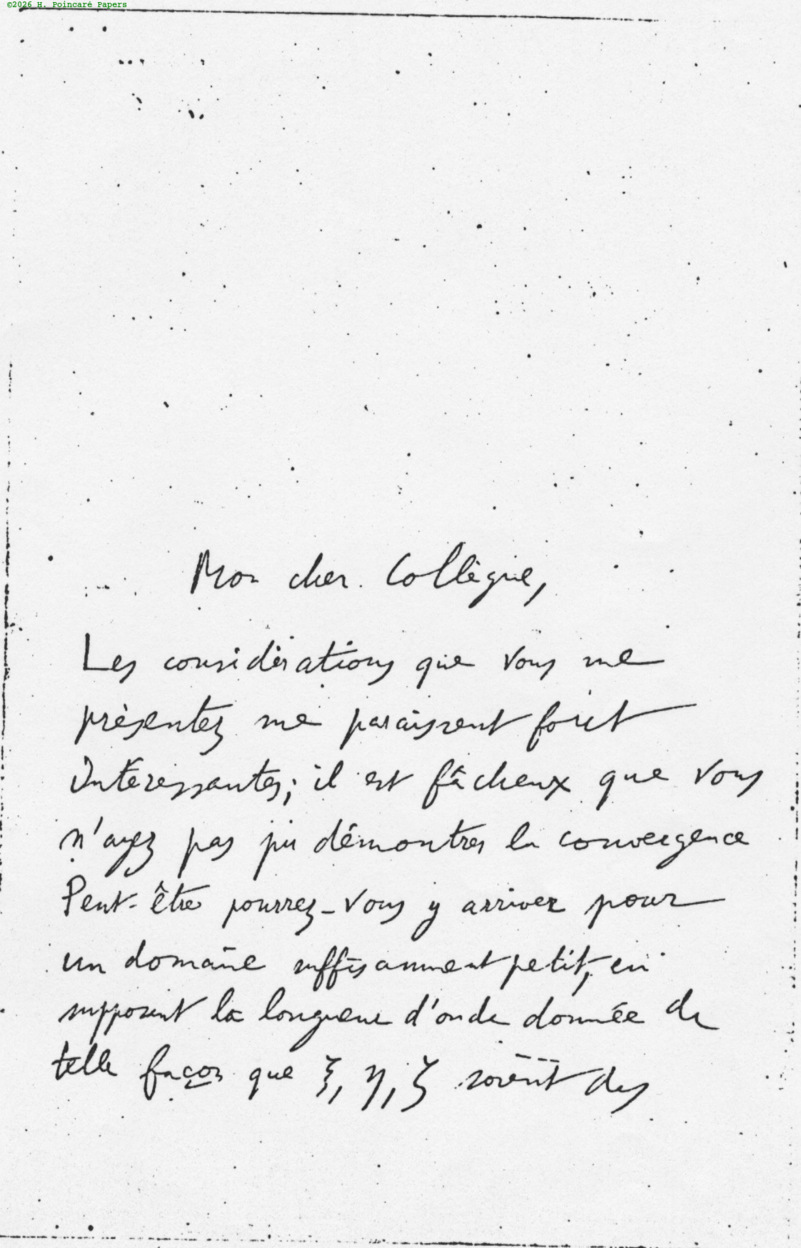 ©2026 H. Poincaré Papers
Mon cher Collègue,
Les considérations que vous me
présentez me paraissent fort
intéressantes; il est fâcheux que vous
n'ayez pas pu démontrer la convergence
Peut-être pourrez-vous y arriver pour
un domaine suffisamment petit, en
supposant la longueur d'onde donnée de
telle façon que ξ, η, ζ soient des